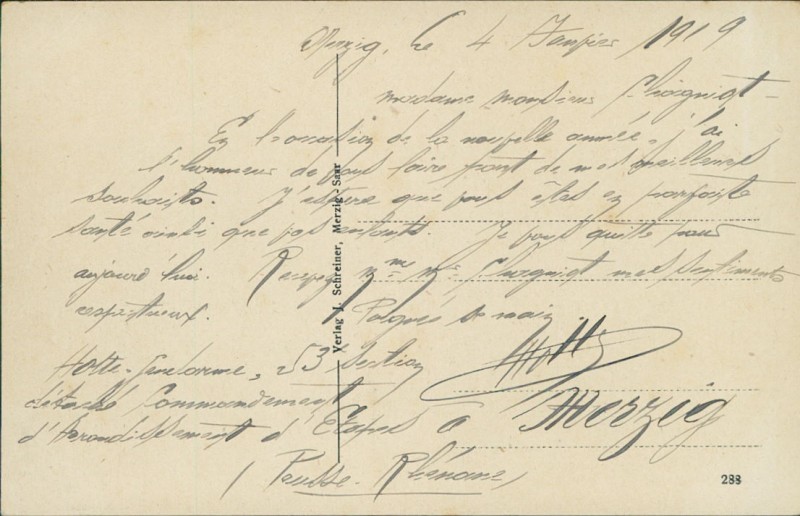 Merzig, le 4 Janvier 1919
Madame Monsieur
En l'occasion de la nouvelle année, j'ai
l'honneur de vous faire part de mes meilleurs
souhaits. J'espère que vous êtes en parfaite
santé ainsi que vos enfants. Je vous quitte pour
aujourd'hui. Recevez Mme Mr mes sentiments
respectueux. Poignée de main
Hotte, Gendarme, 53 Section
détaché Commandement
d'Arrondissement d'Etapes à Merzig
(Prusse-Rhénane)
Verlag J. Schreiner, Merzig-Saar
288